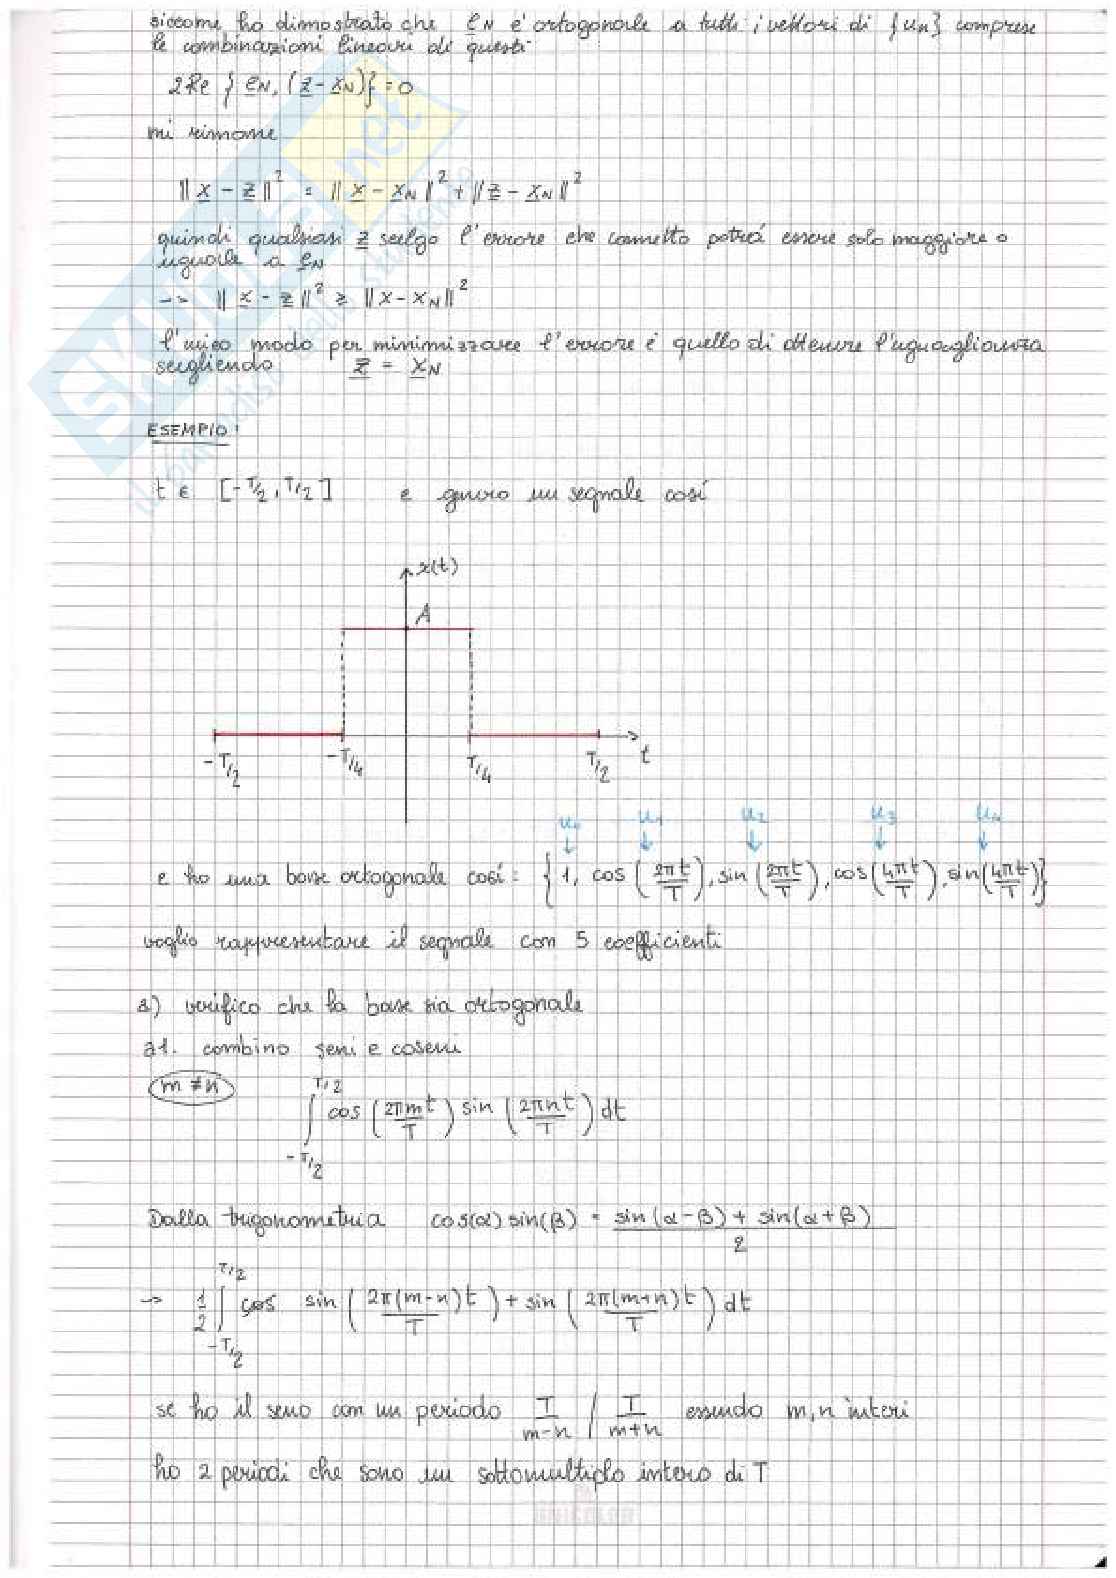 siccome ho dimostrato che e_N è ortogonale a tutti i vettori di {u_n} comprese
le combinazioni lineari di questi
2Re {e_N, (z - x_N)} = 0
mi rimane
‖x - z‖² = ‖x - x_N‖² + ‖z - x_N‖²
quindi qualsiasi z scelgo l'errore che commetto potrà essere solo maggiore o
uguale a e_N
-> ‖x - z‖² ≥ ‖x - x_N‖²
l'unico modo per minimizzare l'errore è quello di ottenere l'uguaglianza
scegliendo z = x_N
ESEMPIO:
t ∈ [-T/2, T/2] e genero un segnale così
x(t)
A
-T/2 -T/4 T/4 T/2 t
u₀ u₁ u₂ u₃ u₄
e ho una base ortogonale così: {1, cos(2πt/T), sin(2πt/T), cos(4πt/T), sin(4πt/T)}
voglio rappresentare il segnale con 5 coefficienti
a) verifico che la base sia ortogonale
a1. combino seni e coseni
m ≠ n ∫_{-T/2}^{T/2} cos(2πmt/T) sin(2πnt/T) dt
Dalla trigonometria cos(α) sin(β) = (sin(α-β) + sin(α+β))/2
-> 1/2 ∫_{-T/2}^{T/2} cos sin(2π(m-n)t/T) + sin(2π(m+n)t/T) dt
se ho il seno con un periodo T/(m-n) / T/(m+n) essendo m,n interi
ho 2 periodi che sono un sottomultiplo intero di T
SKUOLA.net
il paradiso dello studente